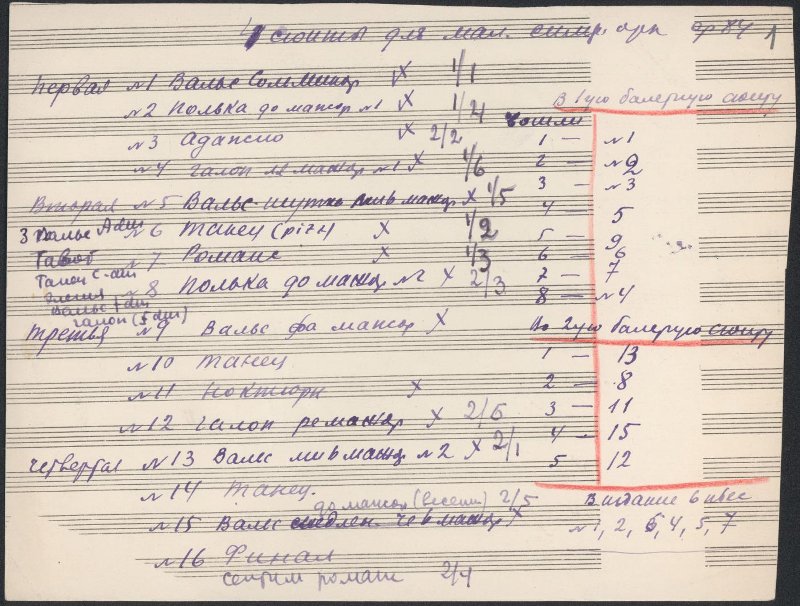 4 сюиты для мал. симф. орк ор 84 1
первая №1 Вальс Соль Минор X 1/1
№2 Полька до мажор №1 X 1/4
№3 Адажио X 2/2
№4 Галоп ля мажор №1 X 1/6
Вторая №5 Вальс-шутка X 1/5
№6 Танец X 1/2
№7 Романс X 1/3
№8 Полька до мажор №2 X 2/3
3 Вальс A dur
Гавот
Танец C-dur
Элегия
Вальс
галоп
третья №9 Вальс фа мажор X
№10 Танец
№11 Ноктюрн X
№12 Галоп ре мажор X 2/6
четвертая №13 Вальс ми b мажор №2 X 2/1
№14 Танец.
до мажор (весени) 2/5
№15 Вальс X
№16 Финал
сентим романс 2/4
В 1ую балетную сюиту
Вошли
1 — №1
2 — №2
3 — №3
4 — 5
5 — 9
6 — 6
7 — 7
8 — №4
Во 2ую балетную сюиту
1 — 13
2 — 8
3 — 11
4 — 15
5 12
В издание 6 пьес
№1, 2, 6, 4, 5, 7